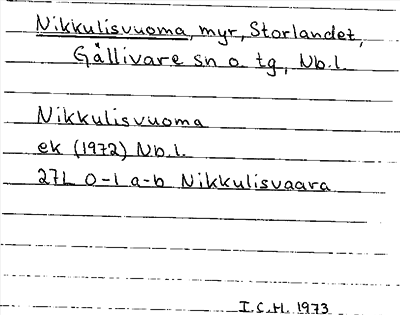 Nikkulisvuoma, myr, Storlandet,
Gällivare sn o. tg, Nb.l.
Nikkulisvuoma
ek (1972) Nb.l.
27L 0-1 a-b Nikkulisvaara
I.C.H. 1973